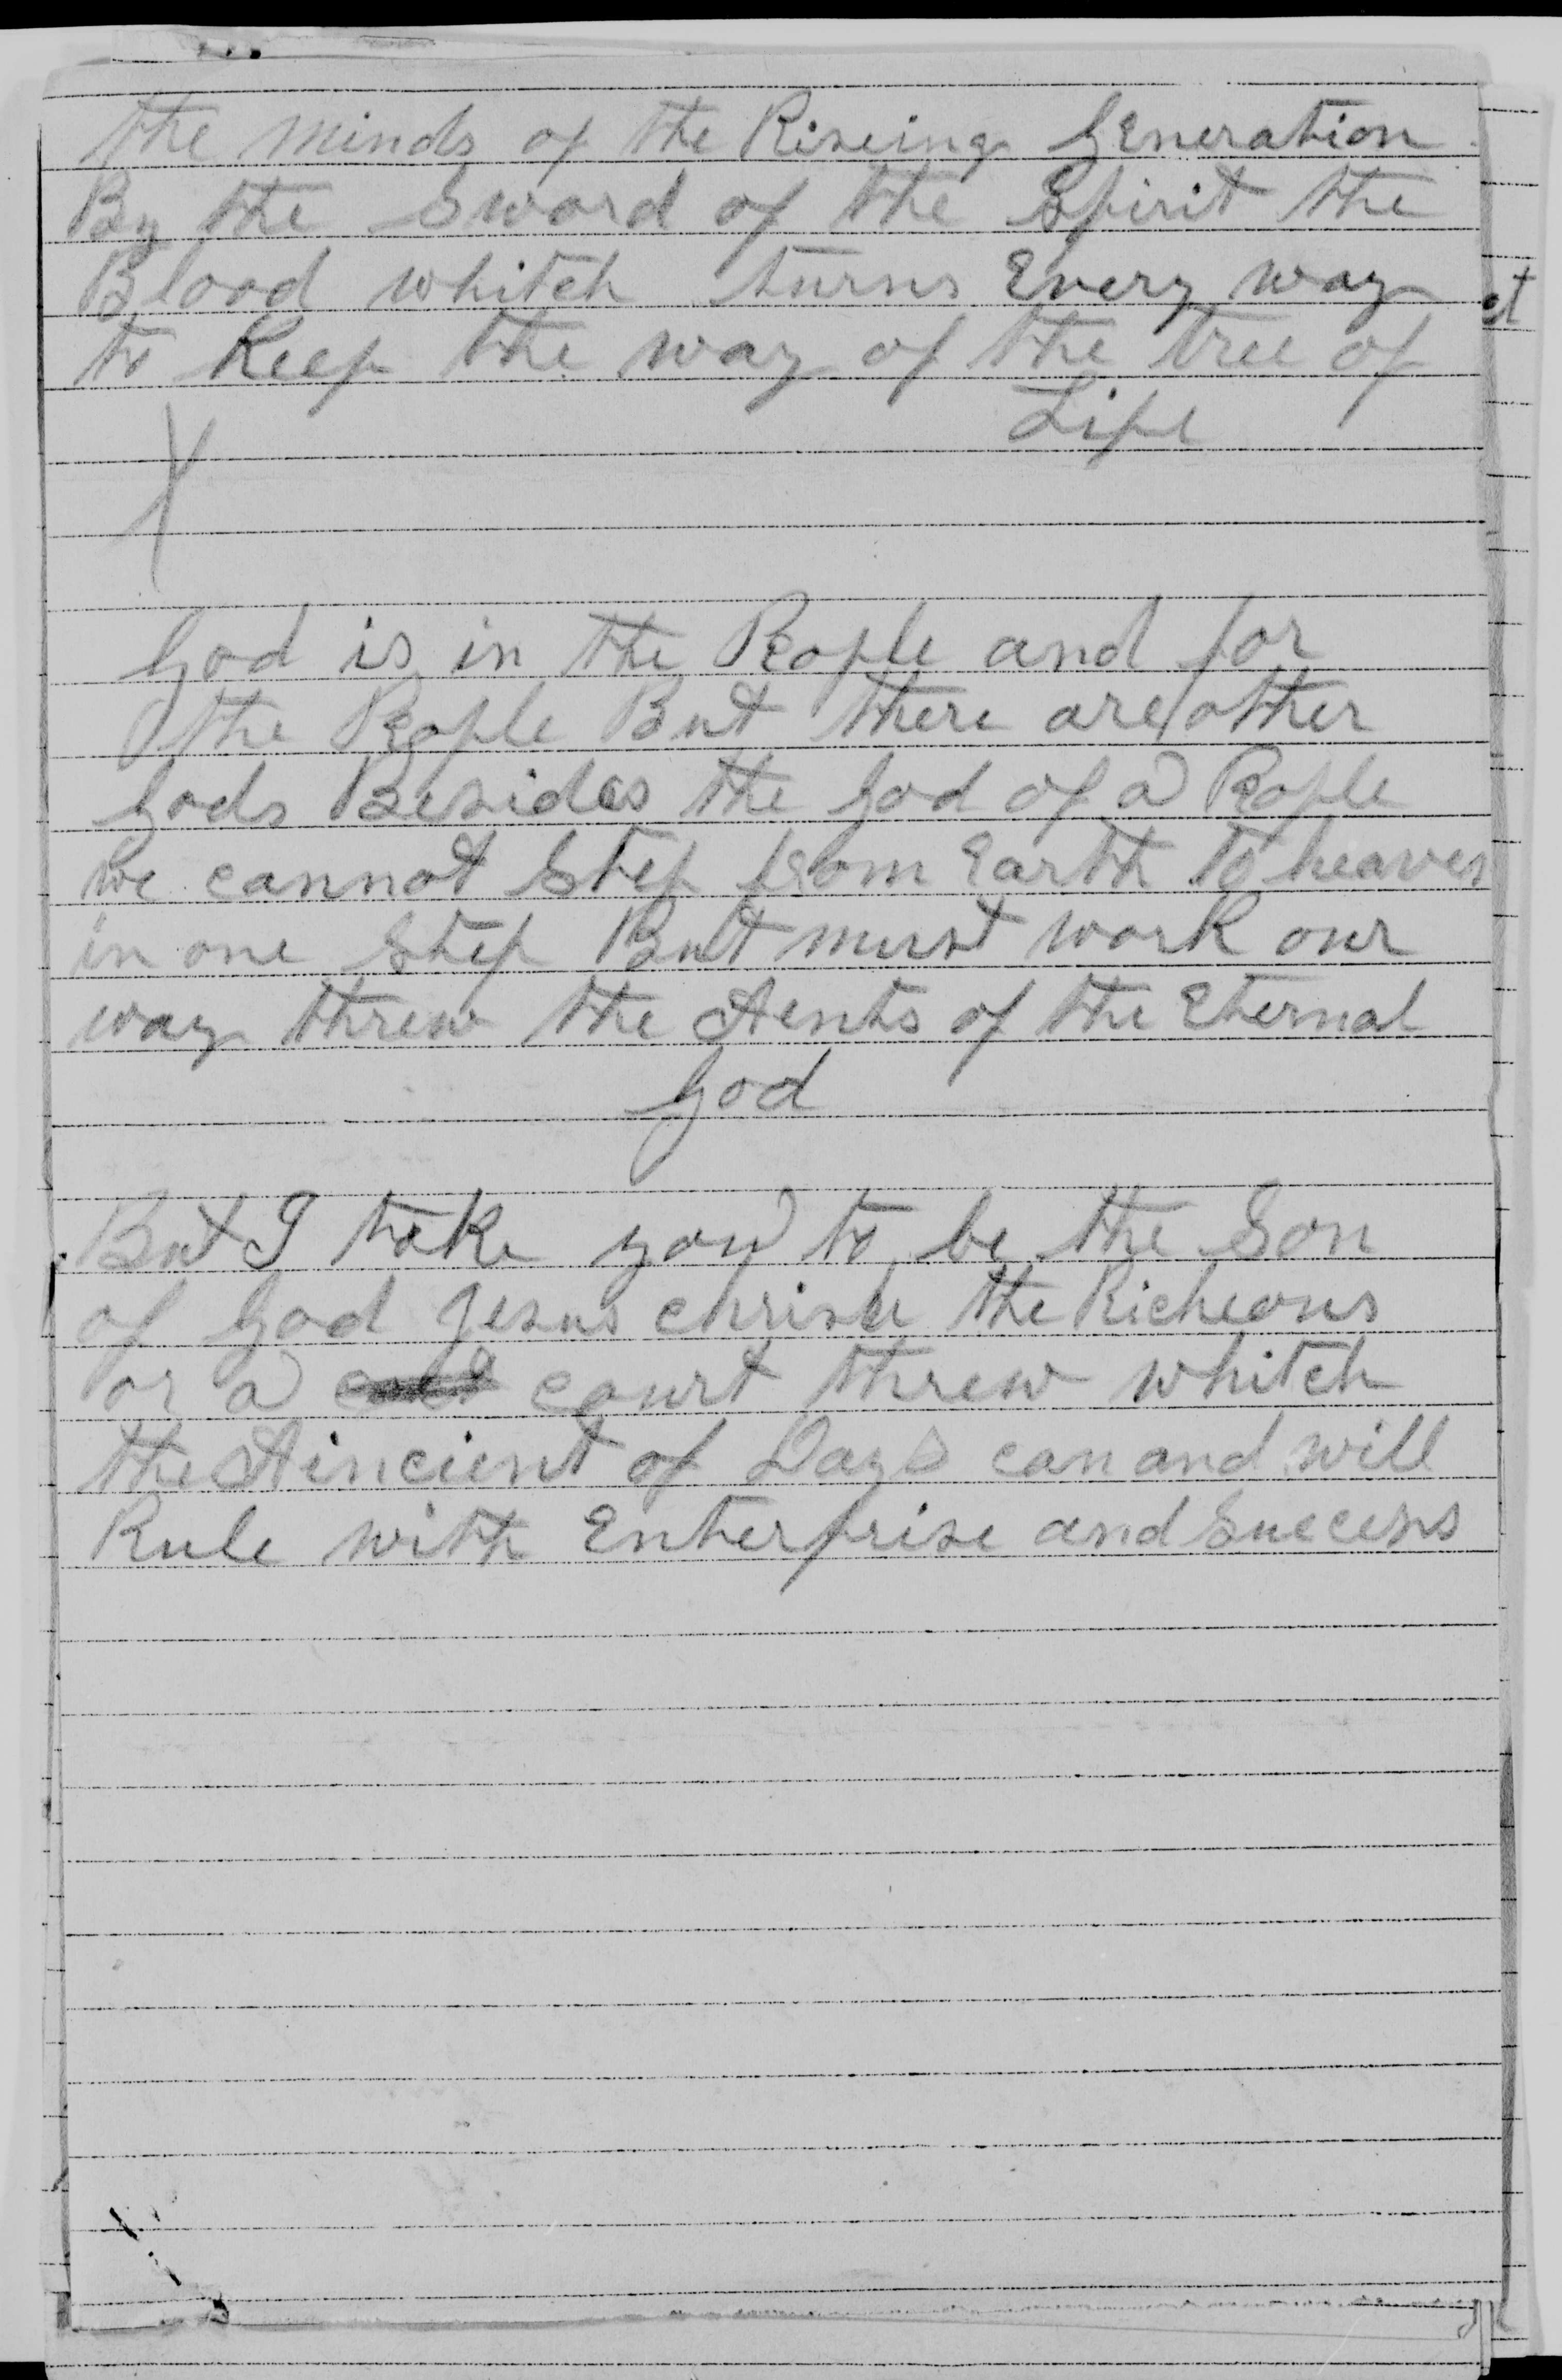 the minds of the Riseing Generation
By the Sword of the Spirit the
Blood whitch turns Every way
to Keep the way of the tree of
Life
X
God is in the People and for
the People But there are other
Gods Besides the God of a People
we cannot Step from Earth to heaven
in one Step But must work our
way threw the Aents of the Eternal
God
But I take you to be the Son
of God Jesus christ the Richeous
or a court threw whitch
the Aincient of Days can and will
Rule with Enterprise and Success